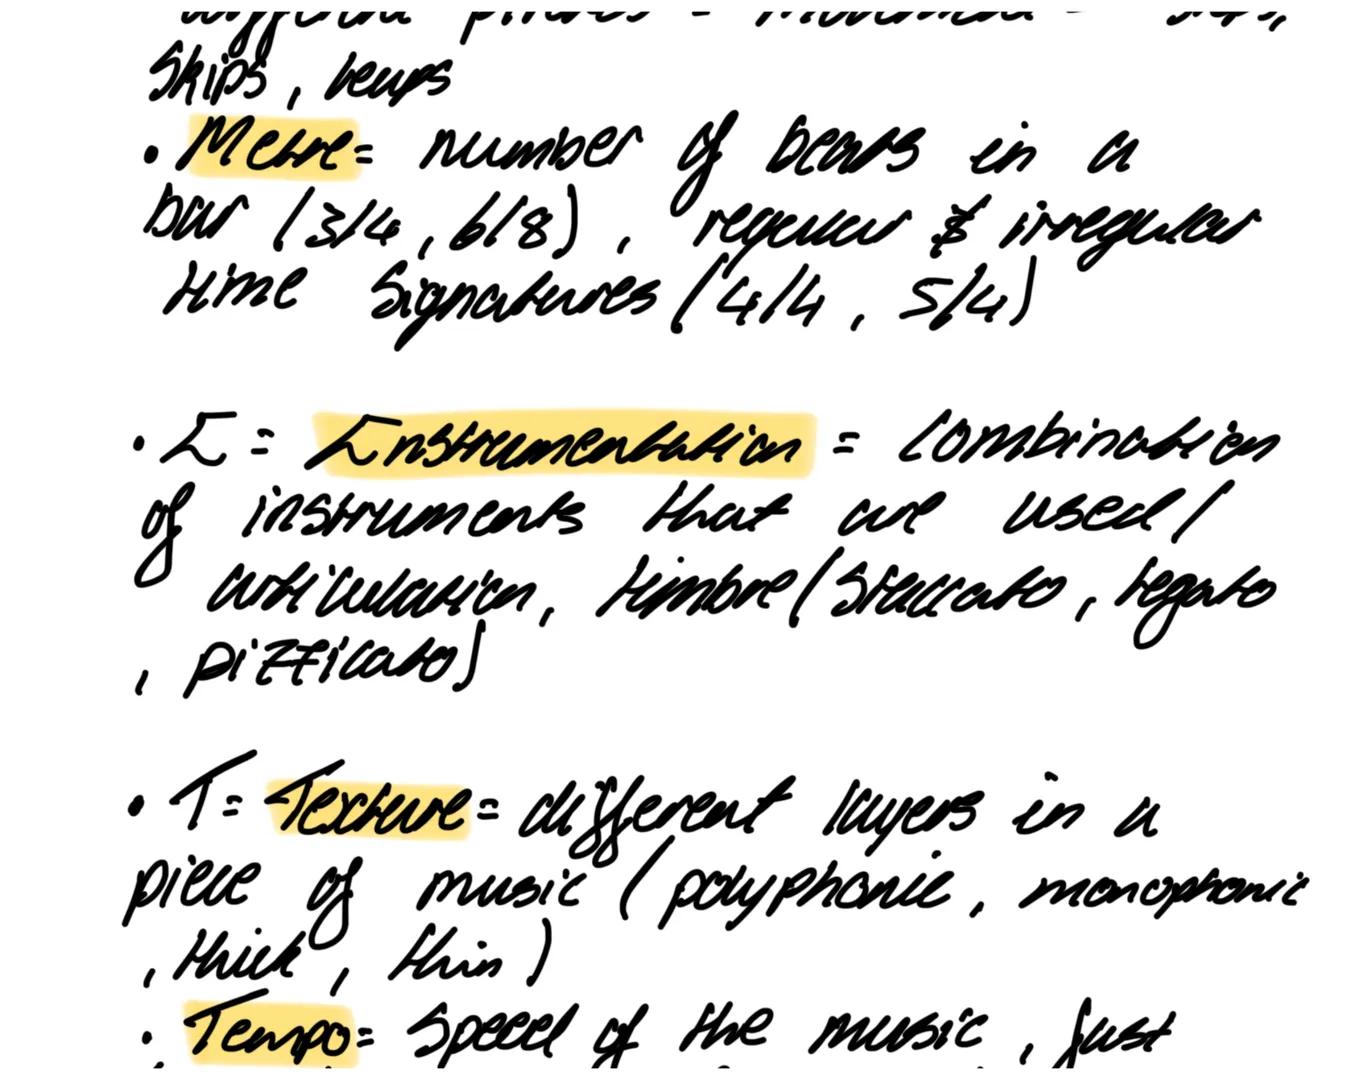 different pitches = movement = steps,
Skips, leaps
• Metre = number of beats in a
bar (3/4, 6/8), regular & irregular
time signatures (4/4, 5/4)
• I = Instrumentation = combination
of instruments that are used/
articulation, timbre (Staccato, legato
, pizzicato)
• T = Texture = different layers in a
piece of music (polyphonic, monophonic
, thick, thin)
• Tempo = Speed of the music, fast